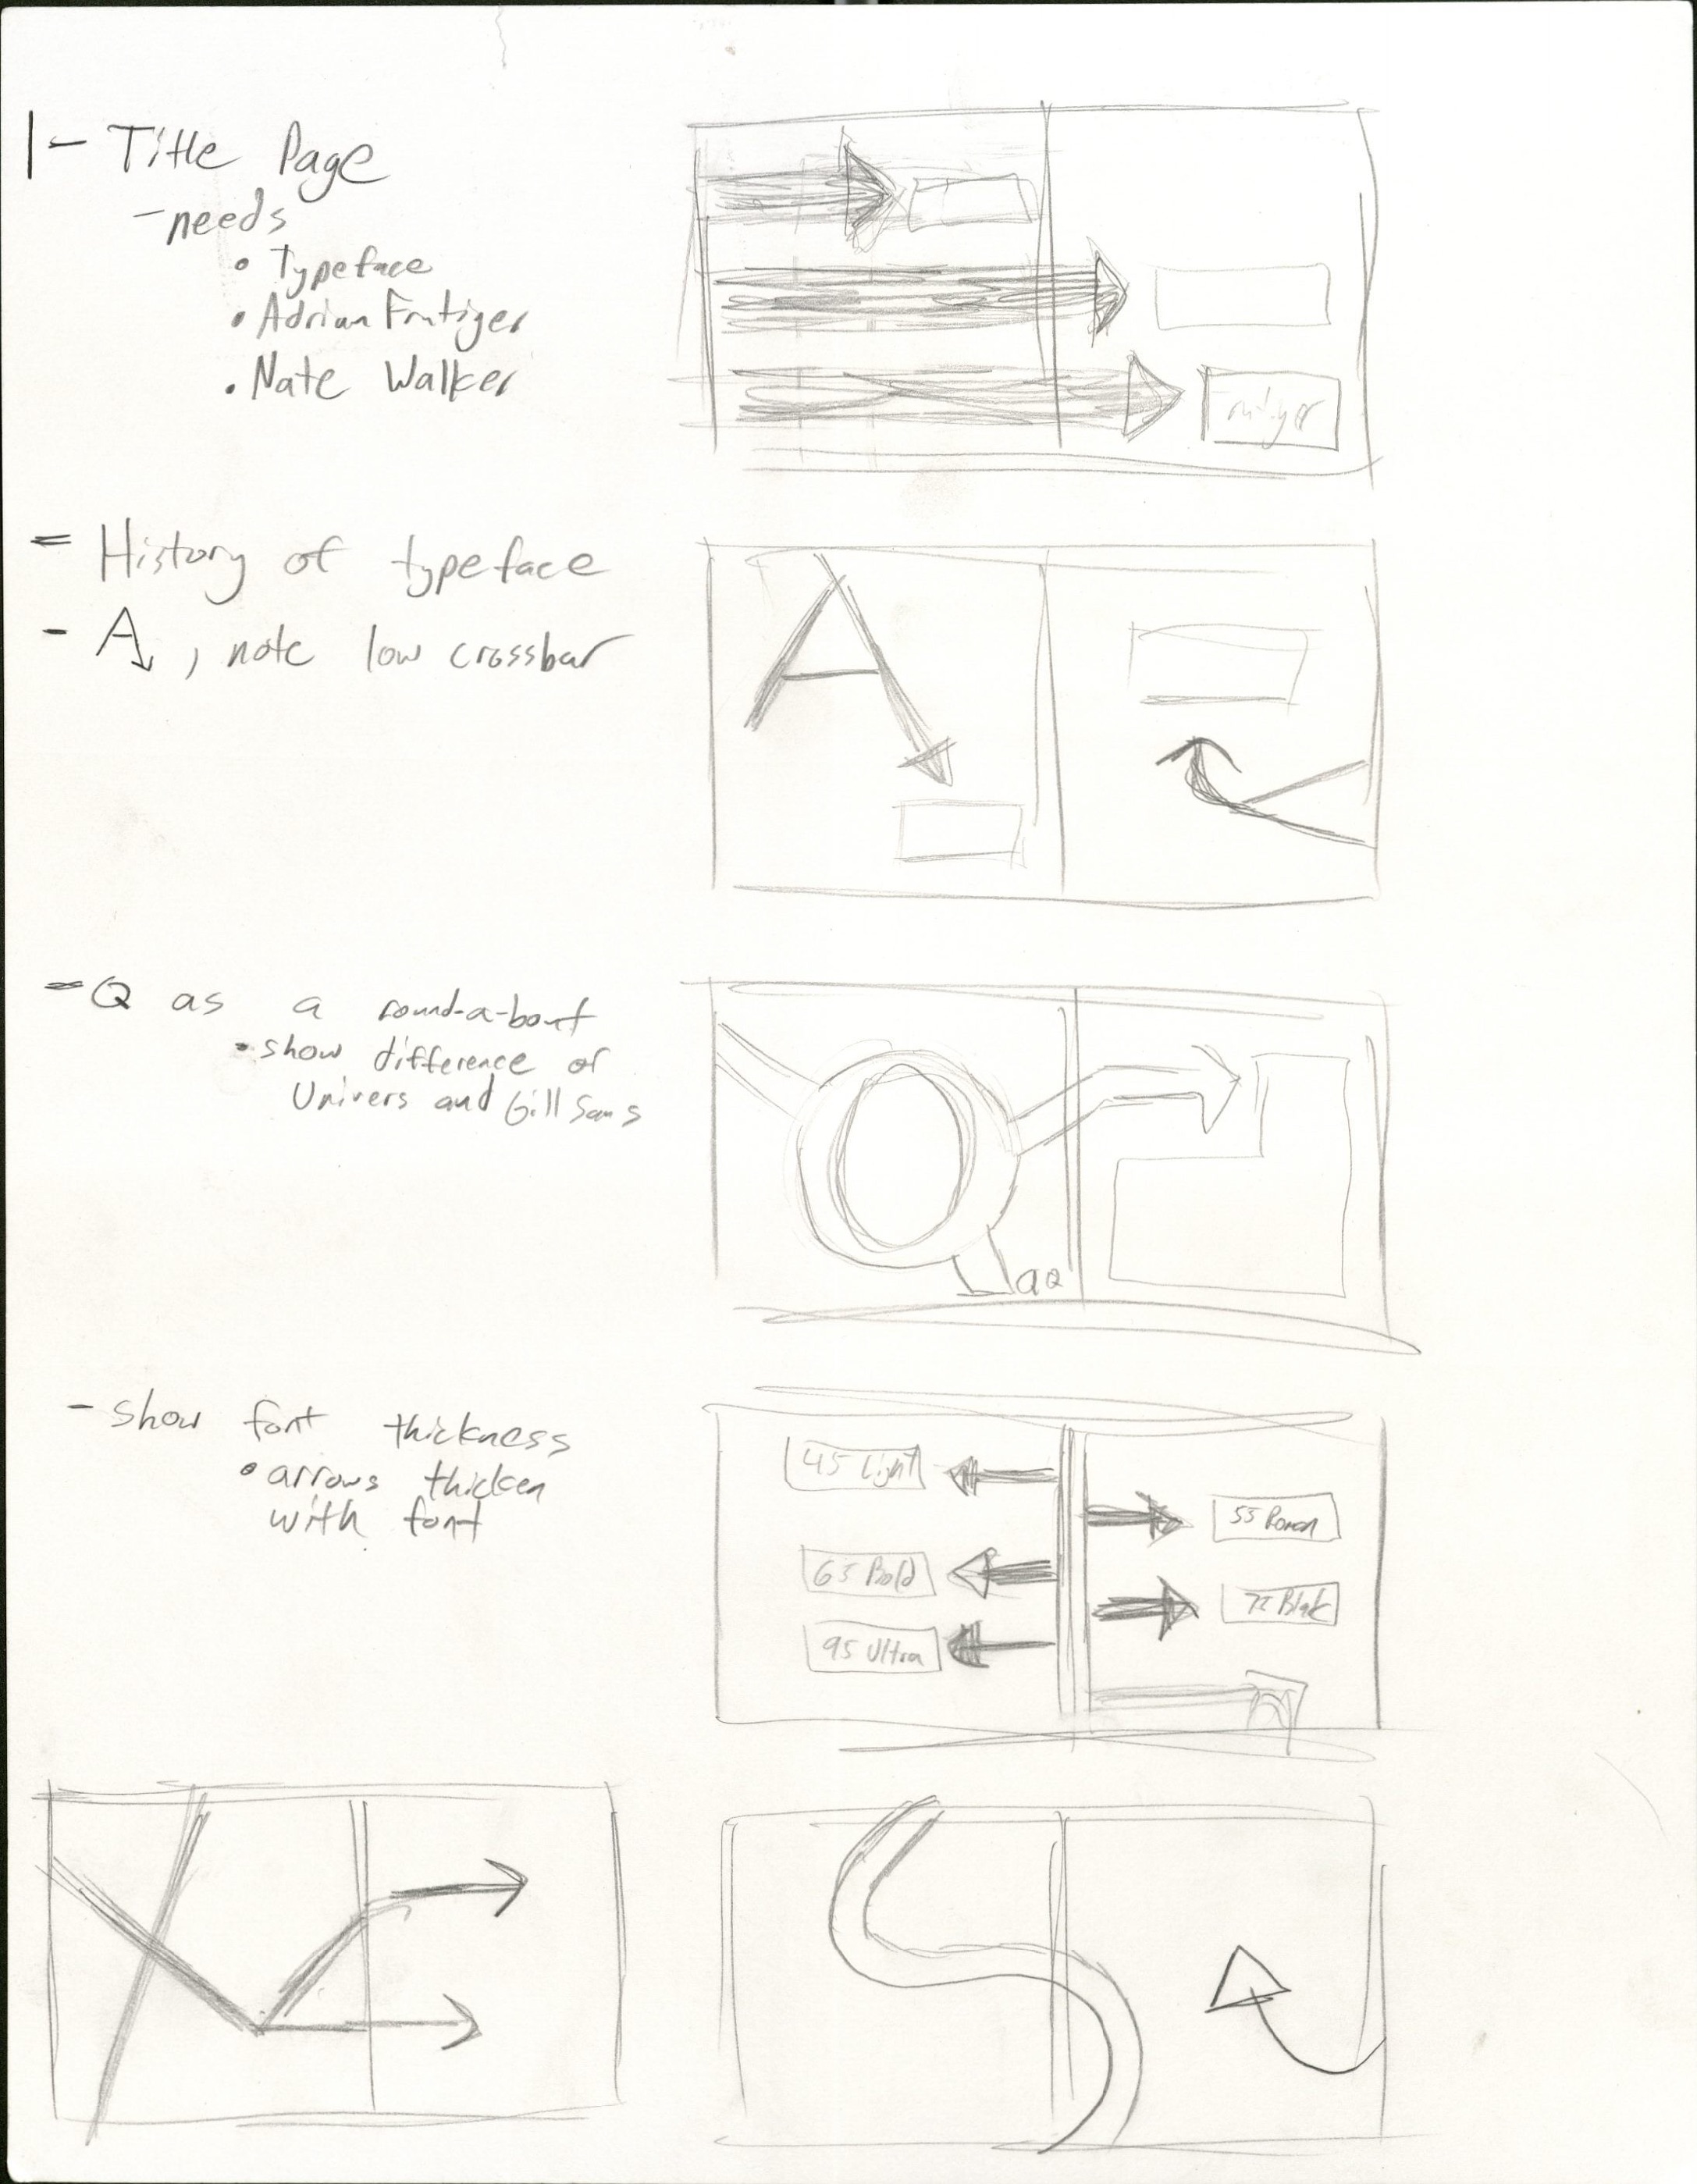 1- Title Page
- needs
• Typeface
• Adrian Frutiger
• Nate Walker
Frutiger
= History of typeface
- A, note low crossbar
A
= Q as a round-a-bout
• show difference of
Univers and Gill Sans
Q
- show font thickness
• arrows thicken
with font
45 Light
55 Roman
65 Bold
75 Black
95 Ultra